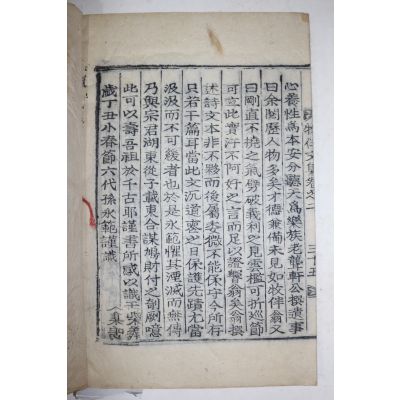 牧伴文集卷之一 三十五
心養性爲本安分聽天爲樂族老聾軒公撰遺事
曰余閱歷人物多矣才德兼備未見如牧伴翁又
曰剛直不撓之氣劈破義利之見雲檻可折巡節
可立此實汙不阿好之言而足以證翁矣翁所
述詩文本非不夥而後屬委微不能保守今所有
只若干篇耳當此文沉道喪之日保護先蹟尤當
汲汲而不可緩者也於是永範懼其湮滅而無傳
乃與宗君湖東從子載東合謀鳩財付之剞劂噫
此可以壽吾祖於千古耶謹書所感以識于
歲丁丑小春節六代孫永範謹識